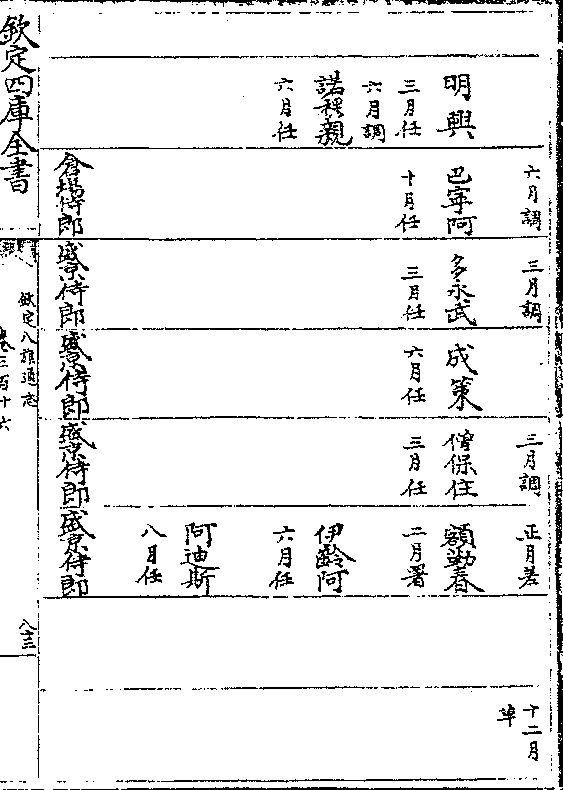 六月調
三月調
三月調
正月差
十二月
卒
明興
三月任
六月調
巴寧阿
十月任
多永武
三月任
成策
六月任
僧保住
三月任
額勒春
二月署
諾穆親
六月任
伊齡阿
六月任
阿迪斯
八月任
倉場侍郎
盛京侍郎
盛京侍郎
盛京侍郎
盛京侍郎
欽定四庫全書
欽定八旗通志
卷三百十六
八三